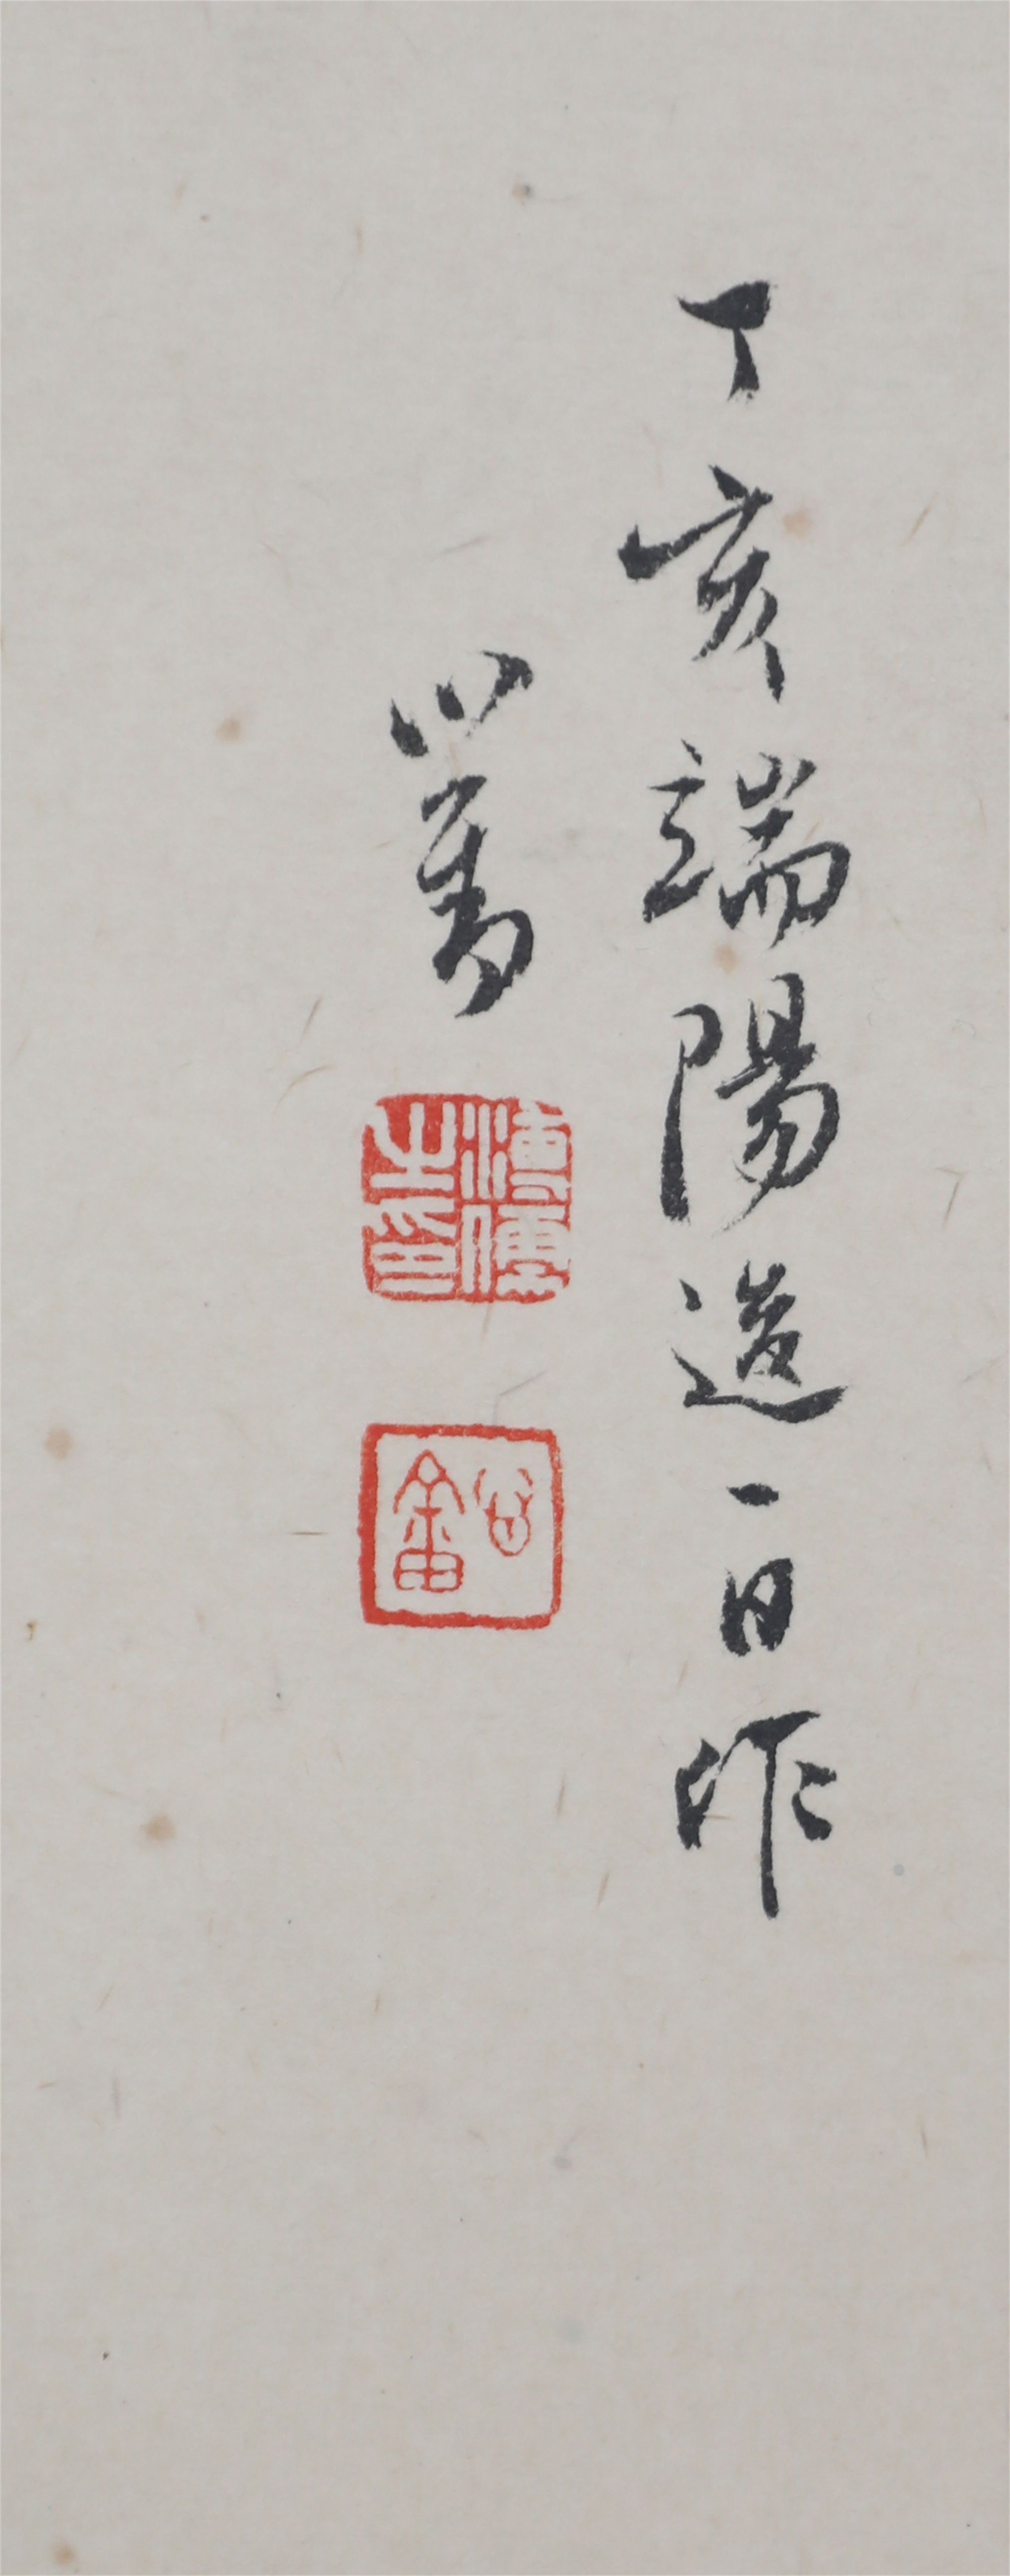 丁亥端陽後一日作
心畬
溥儒之印
心畬